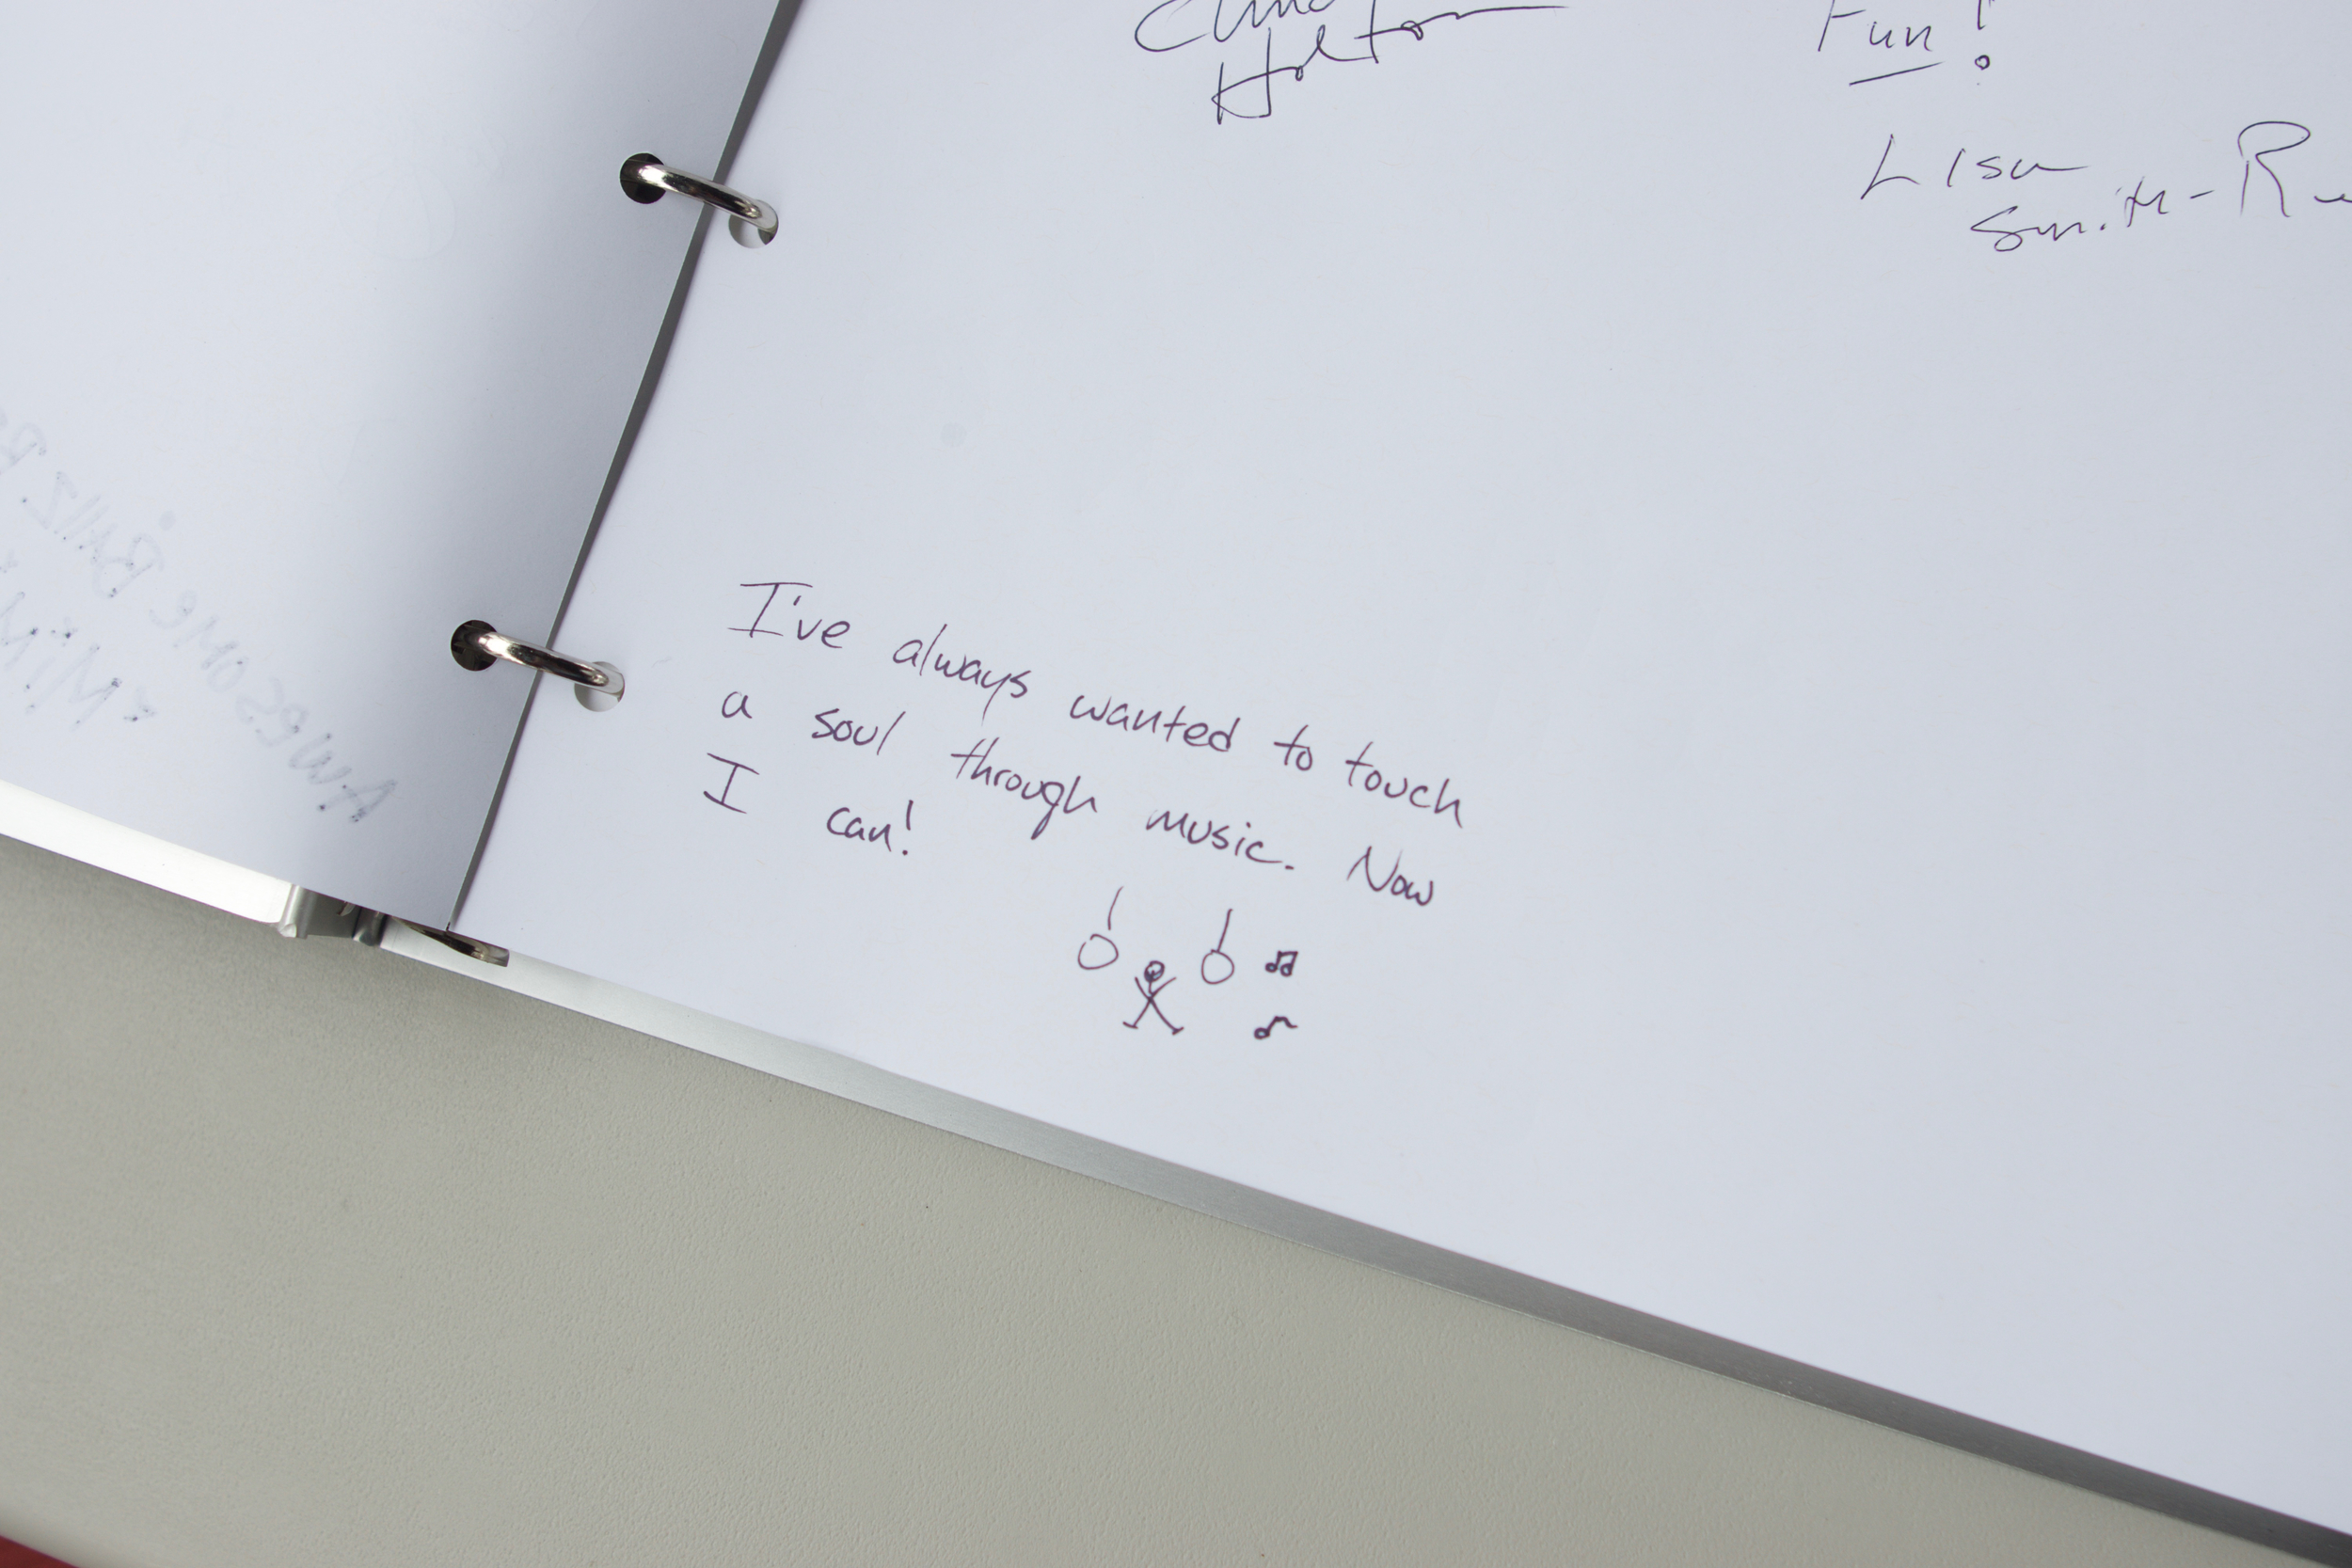 Holton
Fun!
Lisa
Smith-R
I've always wanted to touch
a soul through music. Now
I can!
AWESOME BALLZ